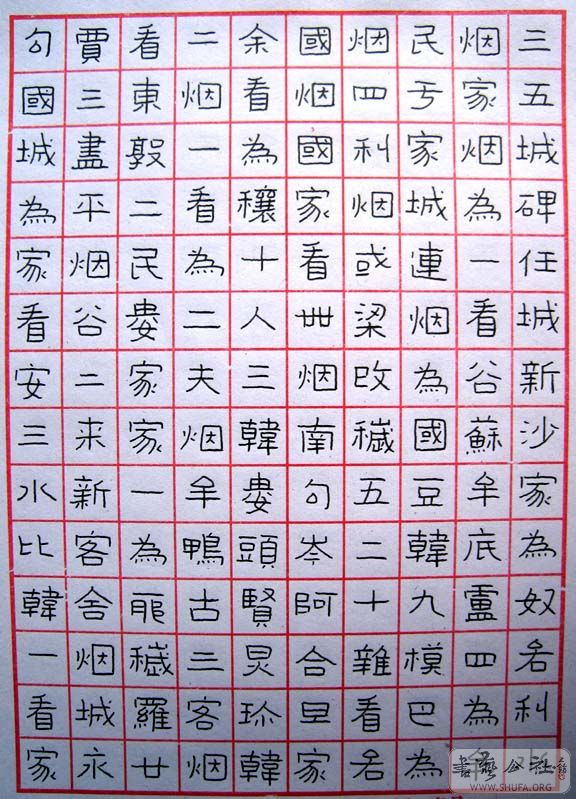 三五城碑任城新沙家為奴名利
烟家烟為一看谷蘇牟底盧四為
民亏家城連烟為國豆韓九模巴為
烟四利烟或梁攺穢五二十雜看名
國烟國家看丗烟南句岑阿合旦家
余看為穰十人三韓婁頭賢炅珎韓
二烟一看為二夫烟牟鴨古三客烟
看東敦二民婁家家一為穢羅廿
賈三盡平烟谷二来新客舍烟城永
句國城為家看安三水比韓一看家
書藝公社
WWW.SHUFA.ORG